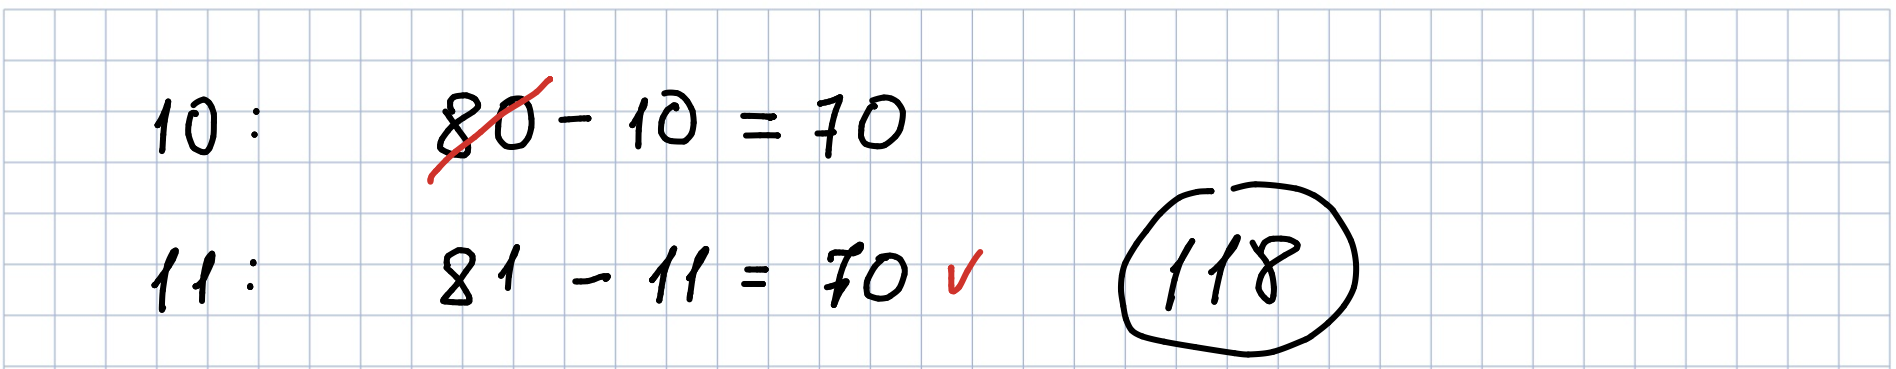 10: 80 - 10 = 70
11: 81 - 11 = 70 ✓ 118